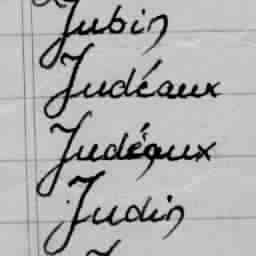 Jubin
Judéaux
Judéaux
Judin